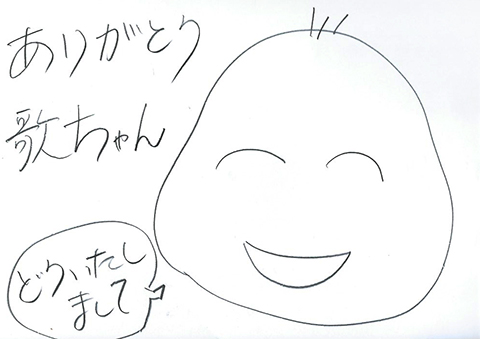 ありがとう
歌ちゃん
どういたし
まして